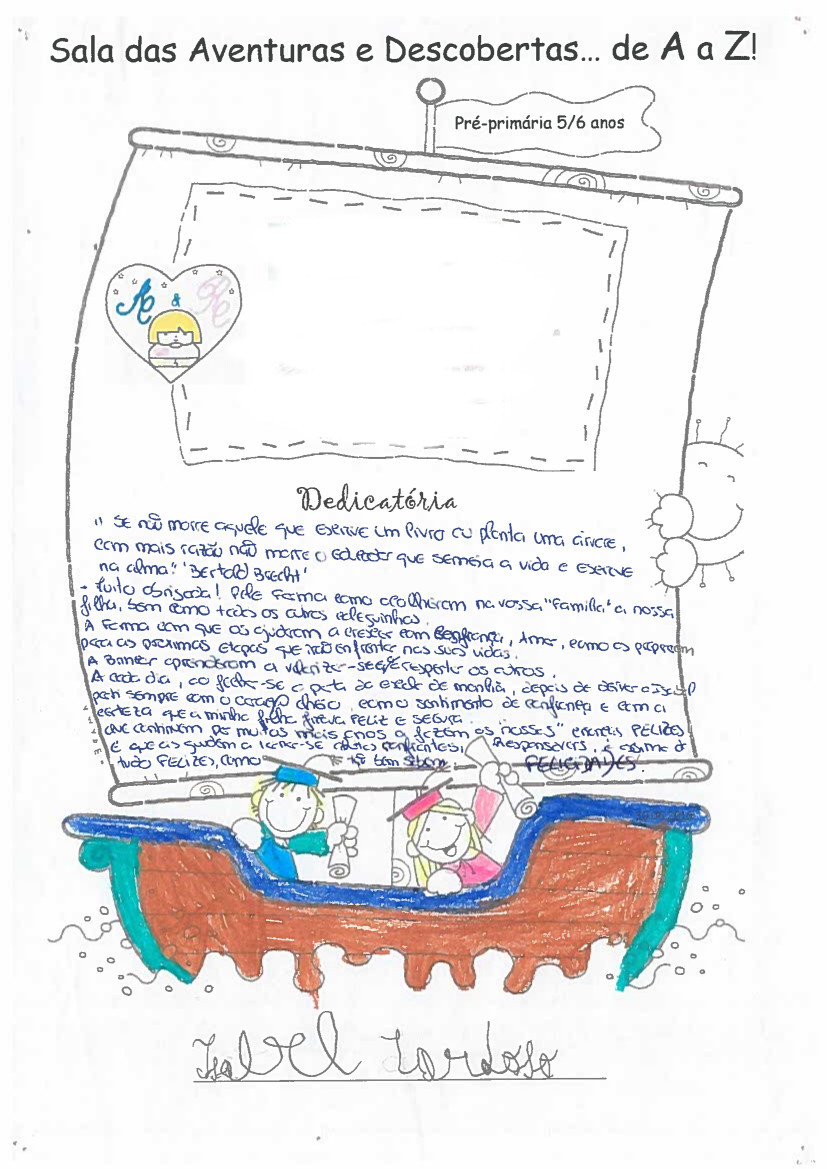 Sala das Aventuras e Descobertas... de A a Z!
Pré-primária 5/6 anos
&
Dedicatória
" Se não morre aquele que escreve um livro ou planta uma árvore,
com mais razão não morre o Educador que semeia a vida e escreve
na alma." "Bertold Brecht"
- Muito obrigada! Pela forma como acolheram na vossa "Família" a nossa
filha, bem como todos os outros coleguinhas.
A forma com que os ajudaram a crescer com segurança, Amor, como os preparam
para as próximas etapas que irão enfrentar nas suas vidas.
A Bonnie aprenderam a valorizar-se e respeitar os outros.
A cada dia, ao fechar-se a porta da escola de manhã, depois de deixar a Isabel
parti sempre com o coração cheio, com o sentimento de confiança e com a
certeza que a minha filha ficava FELIZ e SEGURA.
Que continuem por muitos mais anos a fazem os "nossos" FELIZES
E que os ajudem a tornar-se confiantes, Responsáveis, e acima de
tudo FELIZES, como tão bem sabem. FELICIDADES.
Isabel Cardoso